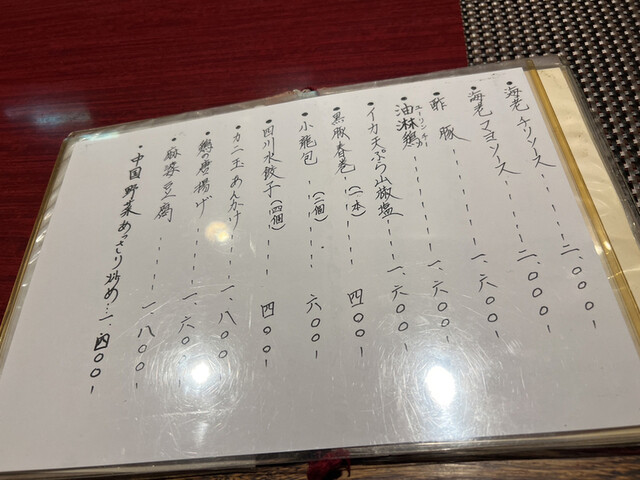 ・海老チリソース - - - - 二、〇〇〇 -
・海老マヨソース - - - - 二、〇〇〇 -
・酢豚 - - - - 一、六〇〇 -
・油淋鶏 ユーリンチー - - - - 一、六〇〇 -
・イカ天ぷら山椒塩 - - - 一、六〇〇 -
・黒豚春巻 (一本) - - - - 四〇〇 -
・小籠包 (二個) - - - 六〇〇 -
・四川水餃子 (四個) - - - 四〇〇 -
・カニ玉あんかけ - - - 一、八〇〇
・鶏の唐揚げ - - - 一、六〇〇 -
・麻婆豆腐 - - - - 一、八〇〇 -
・中国野菜あっさり炒め… 一、四〇〇 -